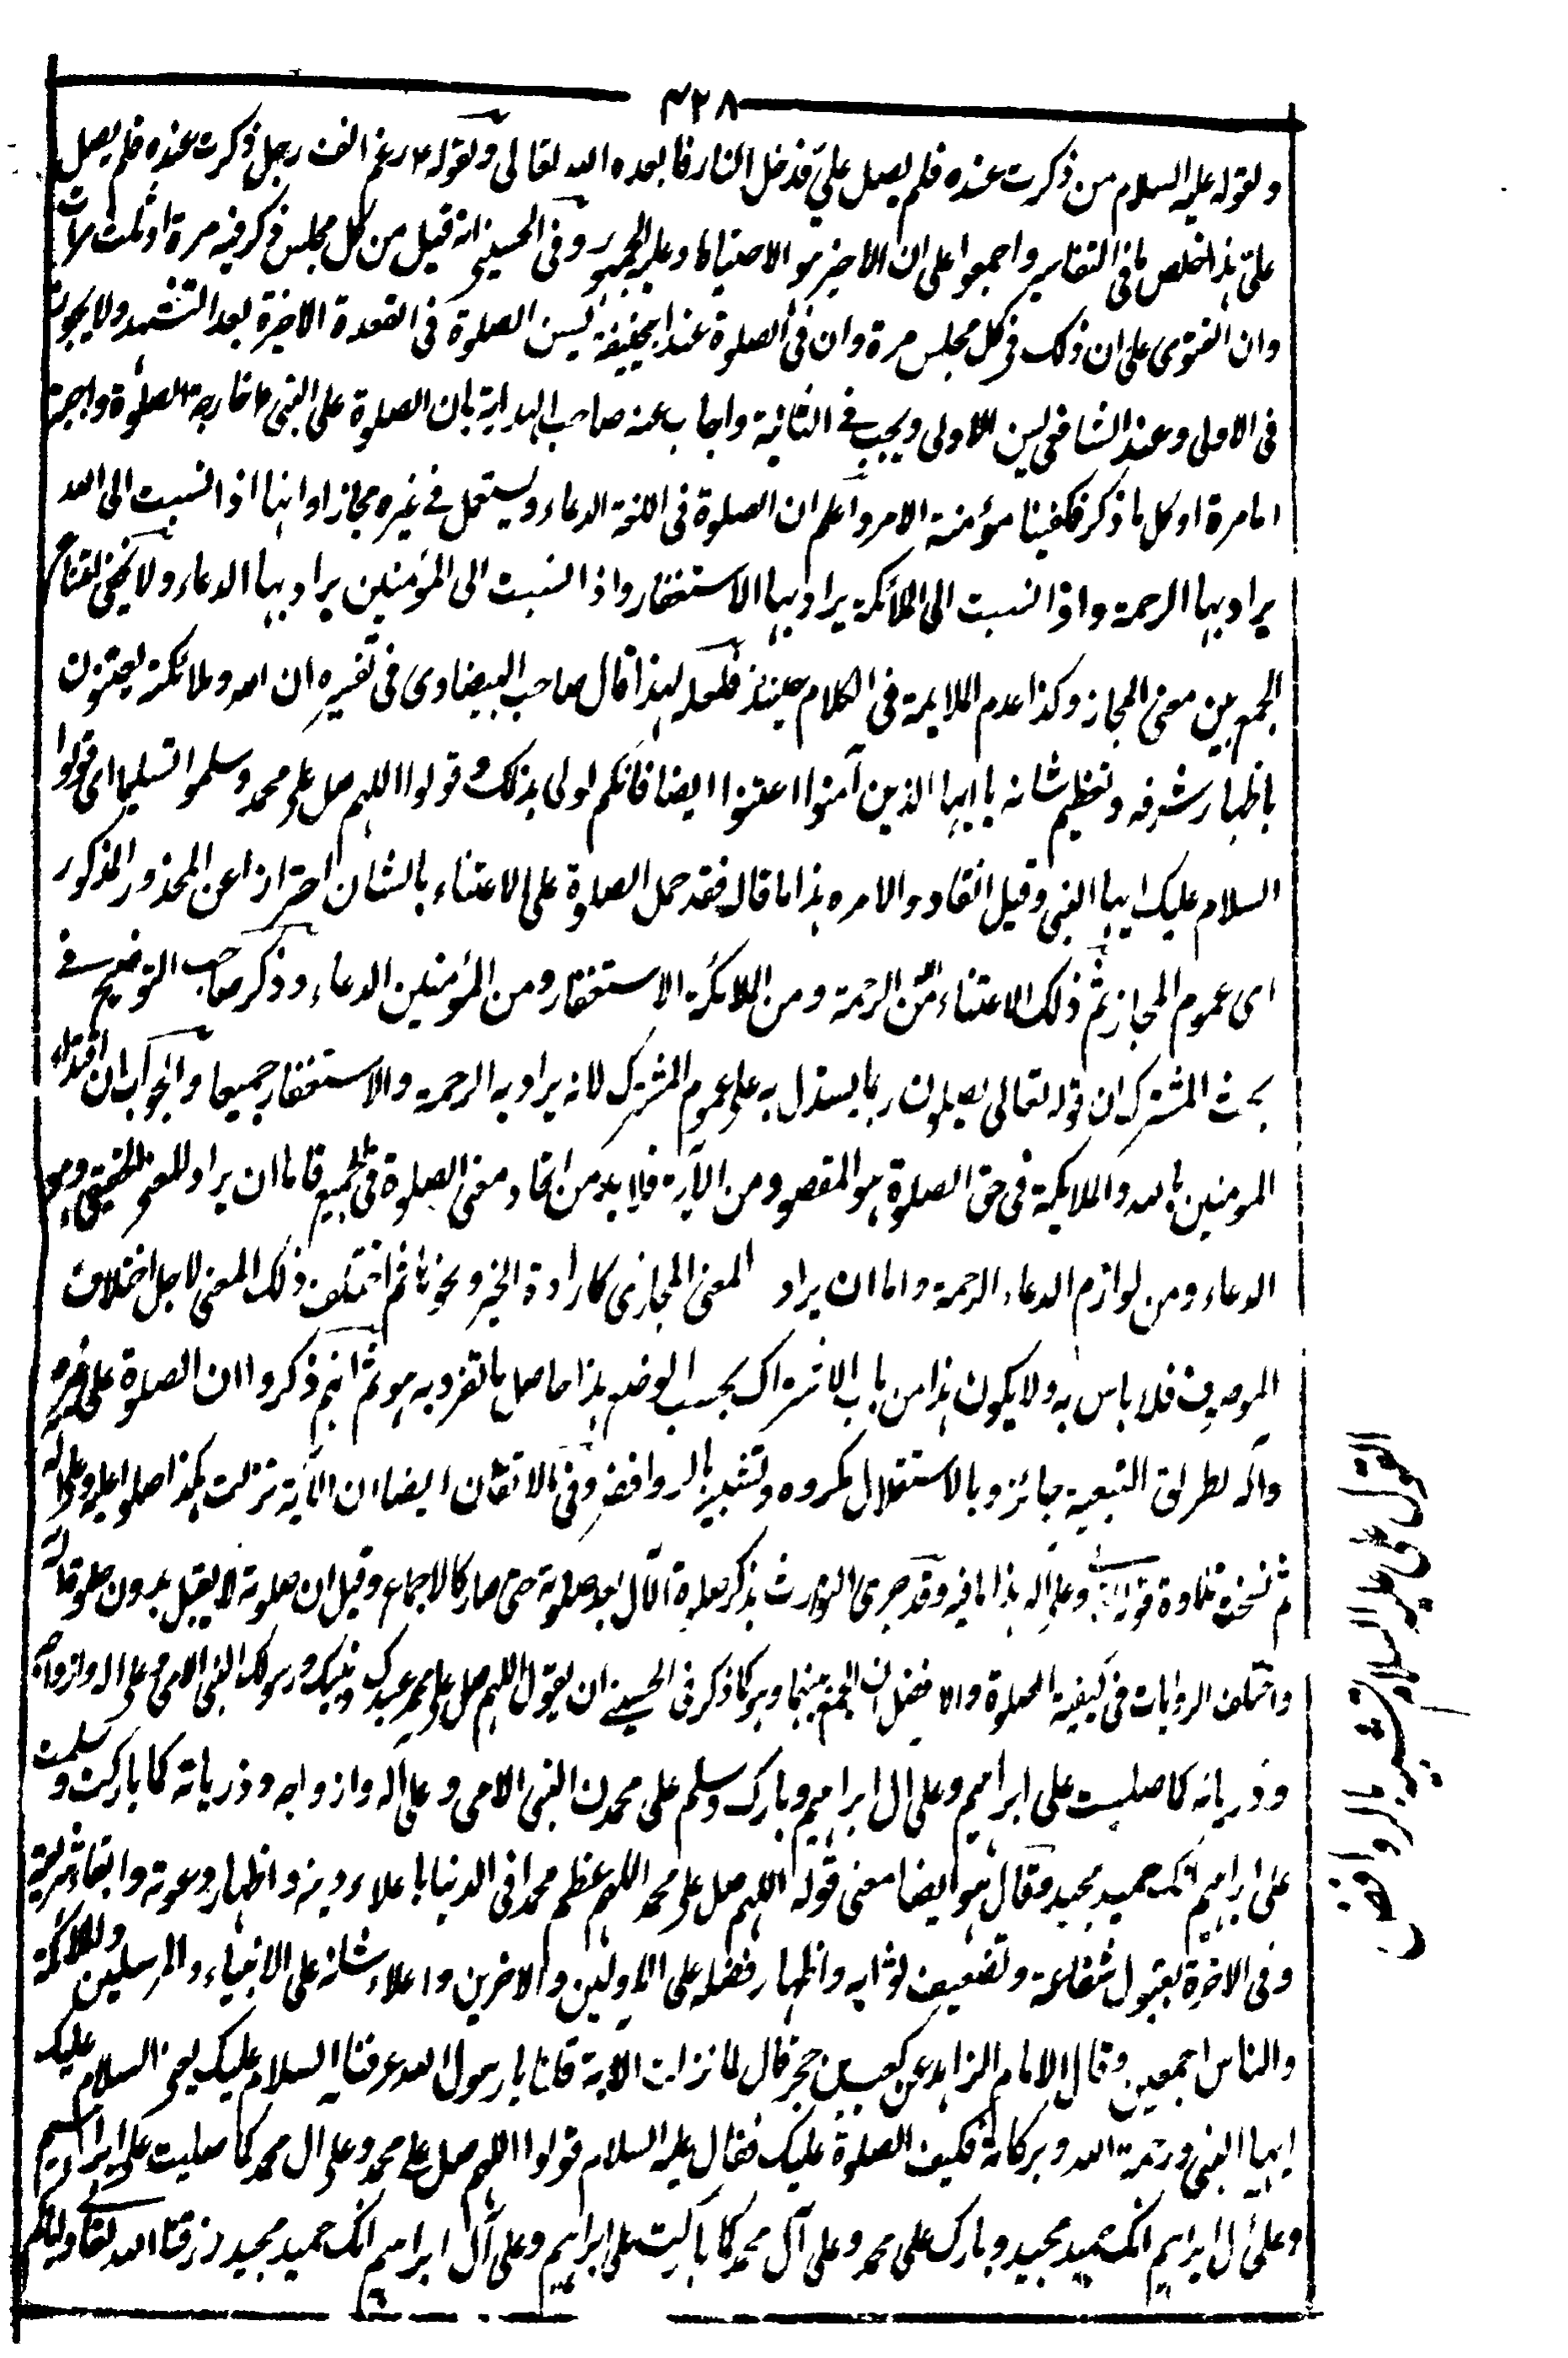 ۴۲۸
ولقوله عليه السلام من ذكرت عنده فلم يصل علي فدخل النار فابعده الله تعالى ولقوله ع رغم انف رجل ذكرت عنده فلم يصل
علي هذا خلص ما في التفاسير واجمعوا على ان الاخير هو الاحتياط وعليه الجمهور وفي الحسيني انه قيل من كل مجلس ذكر فيه مرة او ثلث مرات
وان الفتوى على ان ذلك في كل مجلس مرة وان في الصلوة عند ابيحنيفة يسن الصلوة في القعدة الاخيرة بعد التشهد ولا يجوز
في الاولى وعند الشافعي يسن الاولى ويجب في الثانية واجاب عنه صاحب الهداية بان الصلوة على النبي ع خارج الصلوة واجبة
اما مرة او كل ما ذكر فكفينا مؤنة الامر واعلم ان الصلوة في اللغة الدعاء ويستعمل في غيره مجازا وانها اذا نسبت الى الله
يراد بها الرحمة واذا نسبت الى الملائكة يراد بها الاستغفار واذا نسبت الى المؤمنين يراد بها الدعاء ولا يخفى
الجمع بين معنى المجاز وكذا عدم الملايمة في الكلام حينئذ فلعله لهذا قال صاحب البيضاوى في تفسيره ان الله وملائكته يعتنون
باظهار شرفه وتعظيم شانه يا ايها الذين آمنوا اعتنوا ايضا فانكم اولى بذلك وقولوا اللهم صل على محمد وسلموا تسليما اى قولوا
السلام عليك ايها النبي وقيل انقادوا لامره هذا ما قال فقد حمل الصلوة على الاعتناء بالشان احترازا عن المحذور المذكور
اى عموم المجاز ثم ذلك الاعتناء من الله الرحمة ومن الملائكة الاستغفار ومن المؤمنين الدعاء وذكر صاحب التوضيح في
بحث المشترك ان قوله تعالى يصلون ربما يستدل به على عموم المشترك لانه يراد به الرحمة والاستغفار جميعا والجواب ان اقتداء
المومنين بالله والملايكة في حق الصلوة هو المقصود من الآية فلا بد من اتحاد معنى الصلوة في الجميع فاما ان يراد المعنى الحقيقي وهو
الدعاء ومن لوازم الدعاء الرحمة واما ان يراد المعنى المجازى كارادة الخير ونحوها ثم اختلف ذلك المعنى لاجل اختلاف
الموصوف فلا باس به ولا يكون هذا من باب الاشتراك بحسب الوضع هذا حاصل ما تفرد به هو ثم انهم ذكروا ان الصلوة على غيره
وآله بطريق التبعية جائز وبالاستقلال مكروه وتشبيه بالروافض وفي الاتقان ايضا ان الآية نزلت هكذا صلوا عليه وعلى اله
ثم نسخت تلاوة قوله وعلى اله هذا ما فيه وقد جرى التوارث بذكر صلوة الآل بعد صلوته حتى صار كالاجماع وقيل ان صلوته لا يقبل بدون صلوة اله
واختلف الروايات في كيفية الصلوة والافضل ان يجمع بينهما وهو كما ذكر في الحسيني ان يقول اللهم صل على محمد عبدك ونبيك ورسولك النبي الامي وعلى اله وازواجه
وذرياته كما صليت على ابراهيم وعلى ال ابراهيم وبارك وسلم على محمدن النبي الامي وعلى اله وازواجه وذرياته كما باركت وسلمت
على ابراهيم انك حميد مجيد وقال هو ايضا معنى قوله اللهم صل على محمد اللهم عظم محمدا في الدنيا باعلاء دينه واظهار دعوته وابقاء شريعته
وفي الاخرة بقبول شفاعته وتضعيف ثوابه واظهار فضله على الاولين والاخرين واعلاء شانه على الانبياء والمرسلين والملائكة
والناس اجمعين وقال الامام الزاهد عن كعب بن حجر قال لما نزلت الاية قلنا يا رسول الله عرفنا السلام عليك يعني السلام عليك
ايها النبي ورحمة الله وبركاته فكيف الصلوة عليك فقال عليه السلام قولوا اللهم صل على محمد وعلى ال محمد كما صليت على ابراهيم
وعلى ال ابراهيم انك حميد مجيد وبارك على محمد وعلى آل محمد كما باركت على ابراهيم وعلى آل ابراهيم انك حميد مجيد رزقنا الله تعالى
عليه السلام تشبيه بالروافض